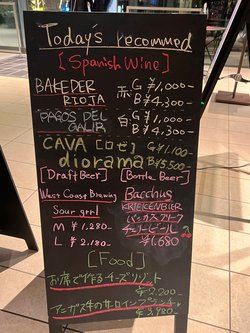 Today's recommed
[Spanish Wine]
BAKEDER
RIOJA
赤 G ¥1,000-
B ¥4,300-
PAGOS DEL
GALIR
白 G ¥1,000-
B ¥4,300-
CAVA [ロゼ] G¥1,100-
diorama B¥5,500-
[Draft Beer]
West Coast Brewing
Sour grrl
M ¥1,280-
L ¥2,180-
[Bottle Beer]
Bacchus
KRIEKENBIER
バッカスクリーク
チェリービール
¥1,680
[Food]
お席で作るチーズリゾット
¥2,200-
アンガス牛のサーロイン
¥3,480-